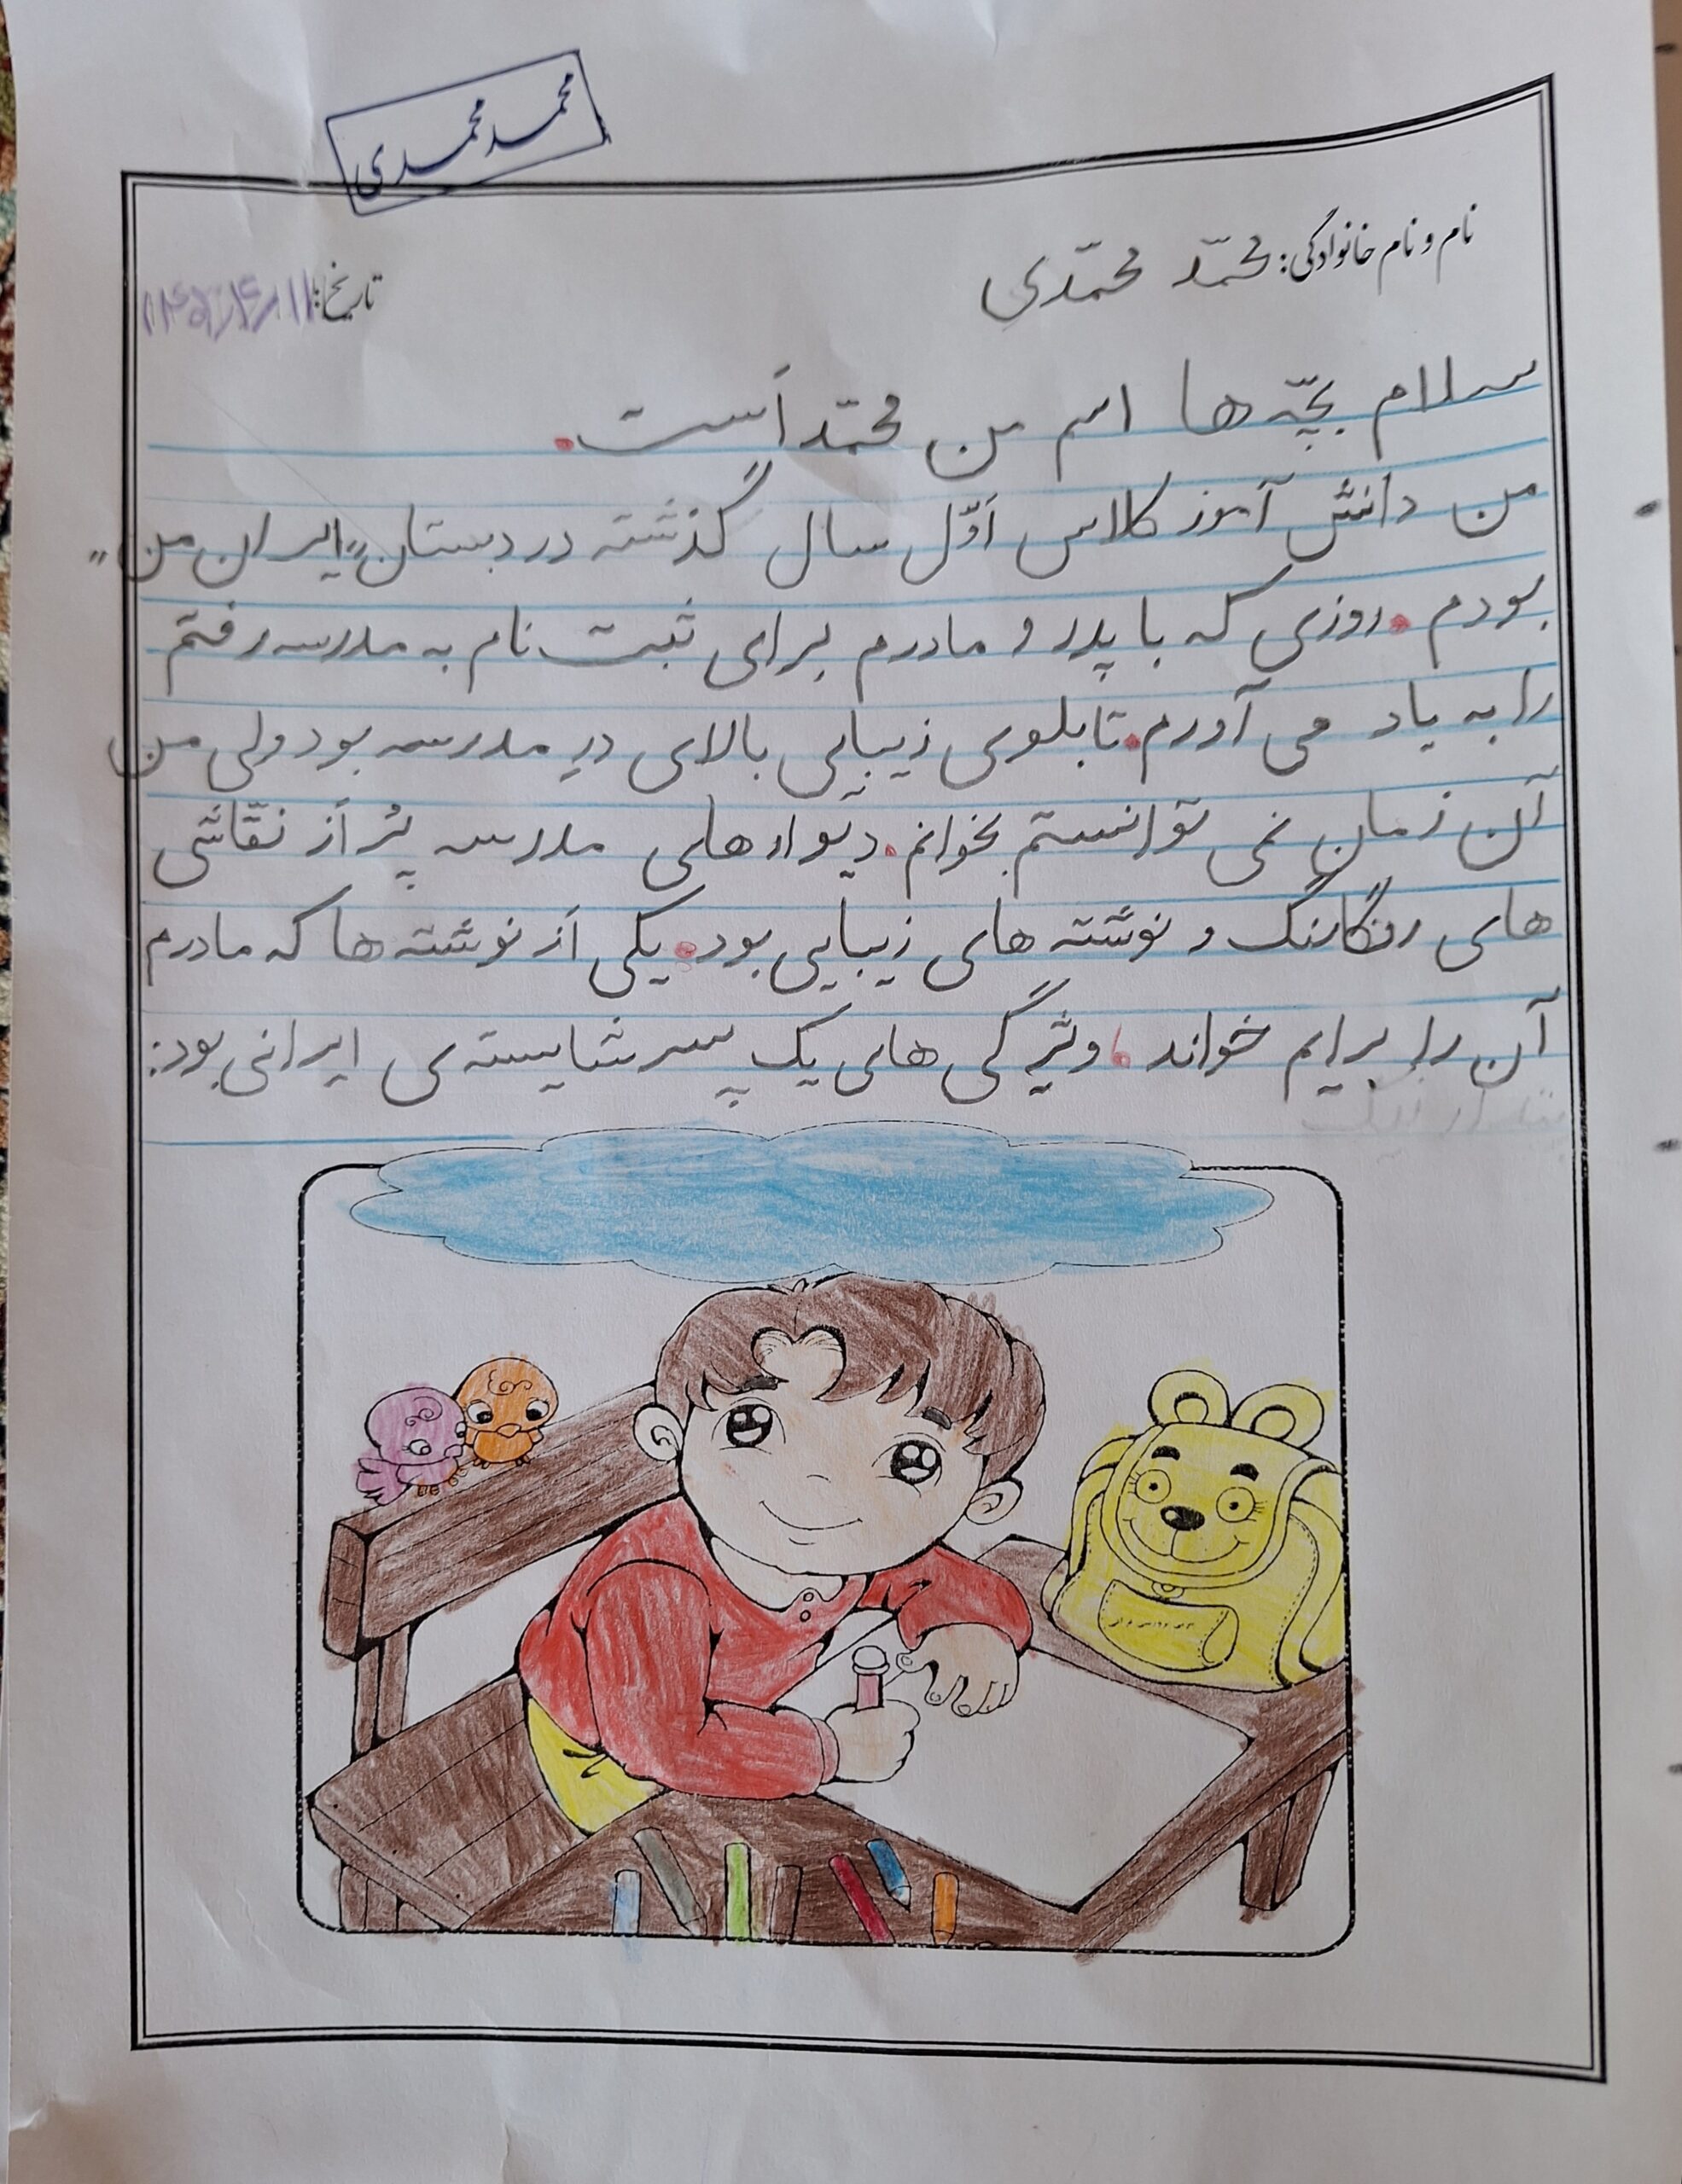 محمد محمدی
نام و نام خانوادگی: محمّد محمّدی
تاریخ:
سلام بچّه ها اسم من محمّد اَست.
من دانش آموز کلاس اَوّل سال گذشته در دبستان "ایران من"
بودم. روزی که با پدر و مادرم برای ثبت نام به مدرسه رفتم
را به یاد می آورم. تابلوی زیبایی بالای درِ مدرسه بود ولی من
آن زمان نمی توانستم بخوانم. دیوارهای مدرسه پُر اَز نقّاشی
های رنگارنگ و نوشته های زیبایی بود. یکی اَز نوشته ها که مادرم
آن را برایم خواند، ویژگی های یک پسر شایسته ی ایرانی بود: